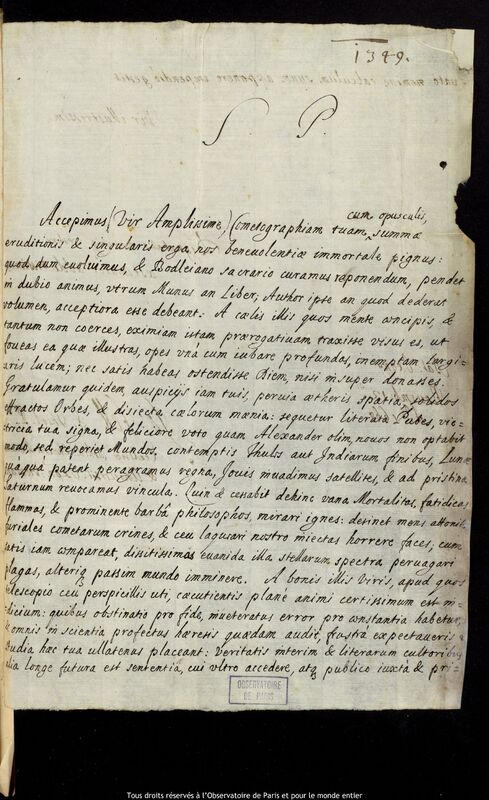 1349.
S. P.
cum opusculis,
Accepimus (Vir Amplissime) Cometographiam tuam, summæ
eruditionis & singularis erga nos beneuolentiæ immortale pignus:
quod dum euoluimus, & Bodleiano sacrario curamus reponendum, pendet
in dubio animus, vtrum Munus an Liber, Author ipse an quod dederat
volumen, acceptiora esse debeant. A cælis illis quos mente concipis, &
tantum non coerces, eximiam istam prærogatiuam traxisse visus es, ut
foueas ea quæ illustras, opes vna cum iubare profundas, inemptam largi-
aris lucem; nec satis habeas ostendisse Diem, nisi insuper donasses.
Gratulamur quidem, auspicijs iam tuis, peruia ætheris spatia, solidos
effractos Orbes, & disiecta cælorum mænia: sequetur literata Pubes, vic-
tricia tua signa, & feliciore voto quam Alexander olim, nouos non optabit
modo, sed reperiet Mundos, contemptis Thulis aut Indiarum finibus, Lunæ
quaquà patent peragramus regna, Jouis inuadimus satellites, & ad pristina
Saturnum reuocamus vincula. Quin & cessabit dehinc vana Mortalitas, fatidicas
flammas, & prominente barbâ philosophos, mirari ignes: desinet mens attonita
furiales cometarum crines, & ceu laqueari nostro iniectas horrere faces, cum
satis iam compareat, dissitissimas euanida illa stellarum spectra peruagari
plagas, alterique passim mundo imminere. A bonis illis Viris, apud quos
telescopio ceu perspicillis uti, cæcutientis planè animi certissimum est in-
dicium: quibus obstinatio pro fide, inueteratus error pro constantia habetur,
& omnis in scientia profectus hæresis quædam audit, frustra expectaueris
studia hæc tua ullatenus placeant: veritatis interim & literarum cultoribus
alia longe futura est sententia, cui vltro accedere, atque publico iuxtà & pri-
OBSERVATOIRE
DE PARIS
Tous droits réservés à l'Observatoire de Paris et pour le monde entier